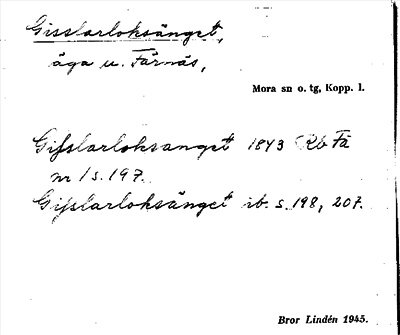 Gisslarloksänget,
äga u. Färnäs,
Mora sn o. tg, Kopp. l.
Gisslarloksanget 1843 Rb Fä
nr 1 s. 197.
Gisslarloksänget ib. s. 198, 207.
Bror Lindén 1945.